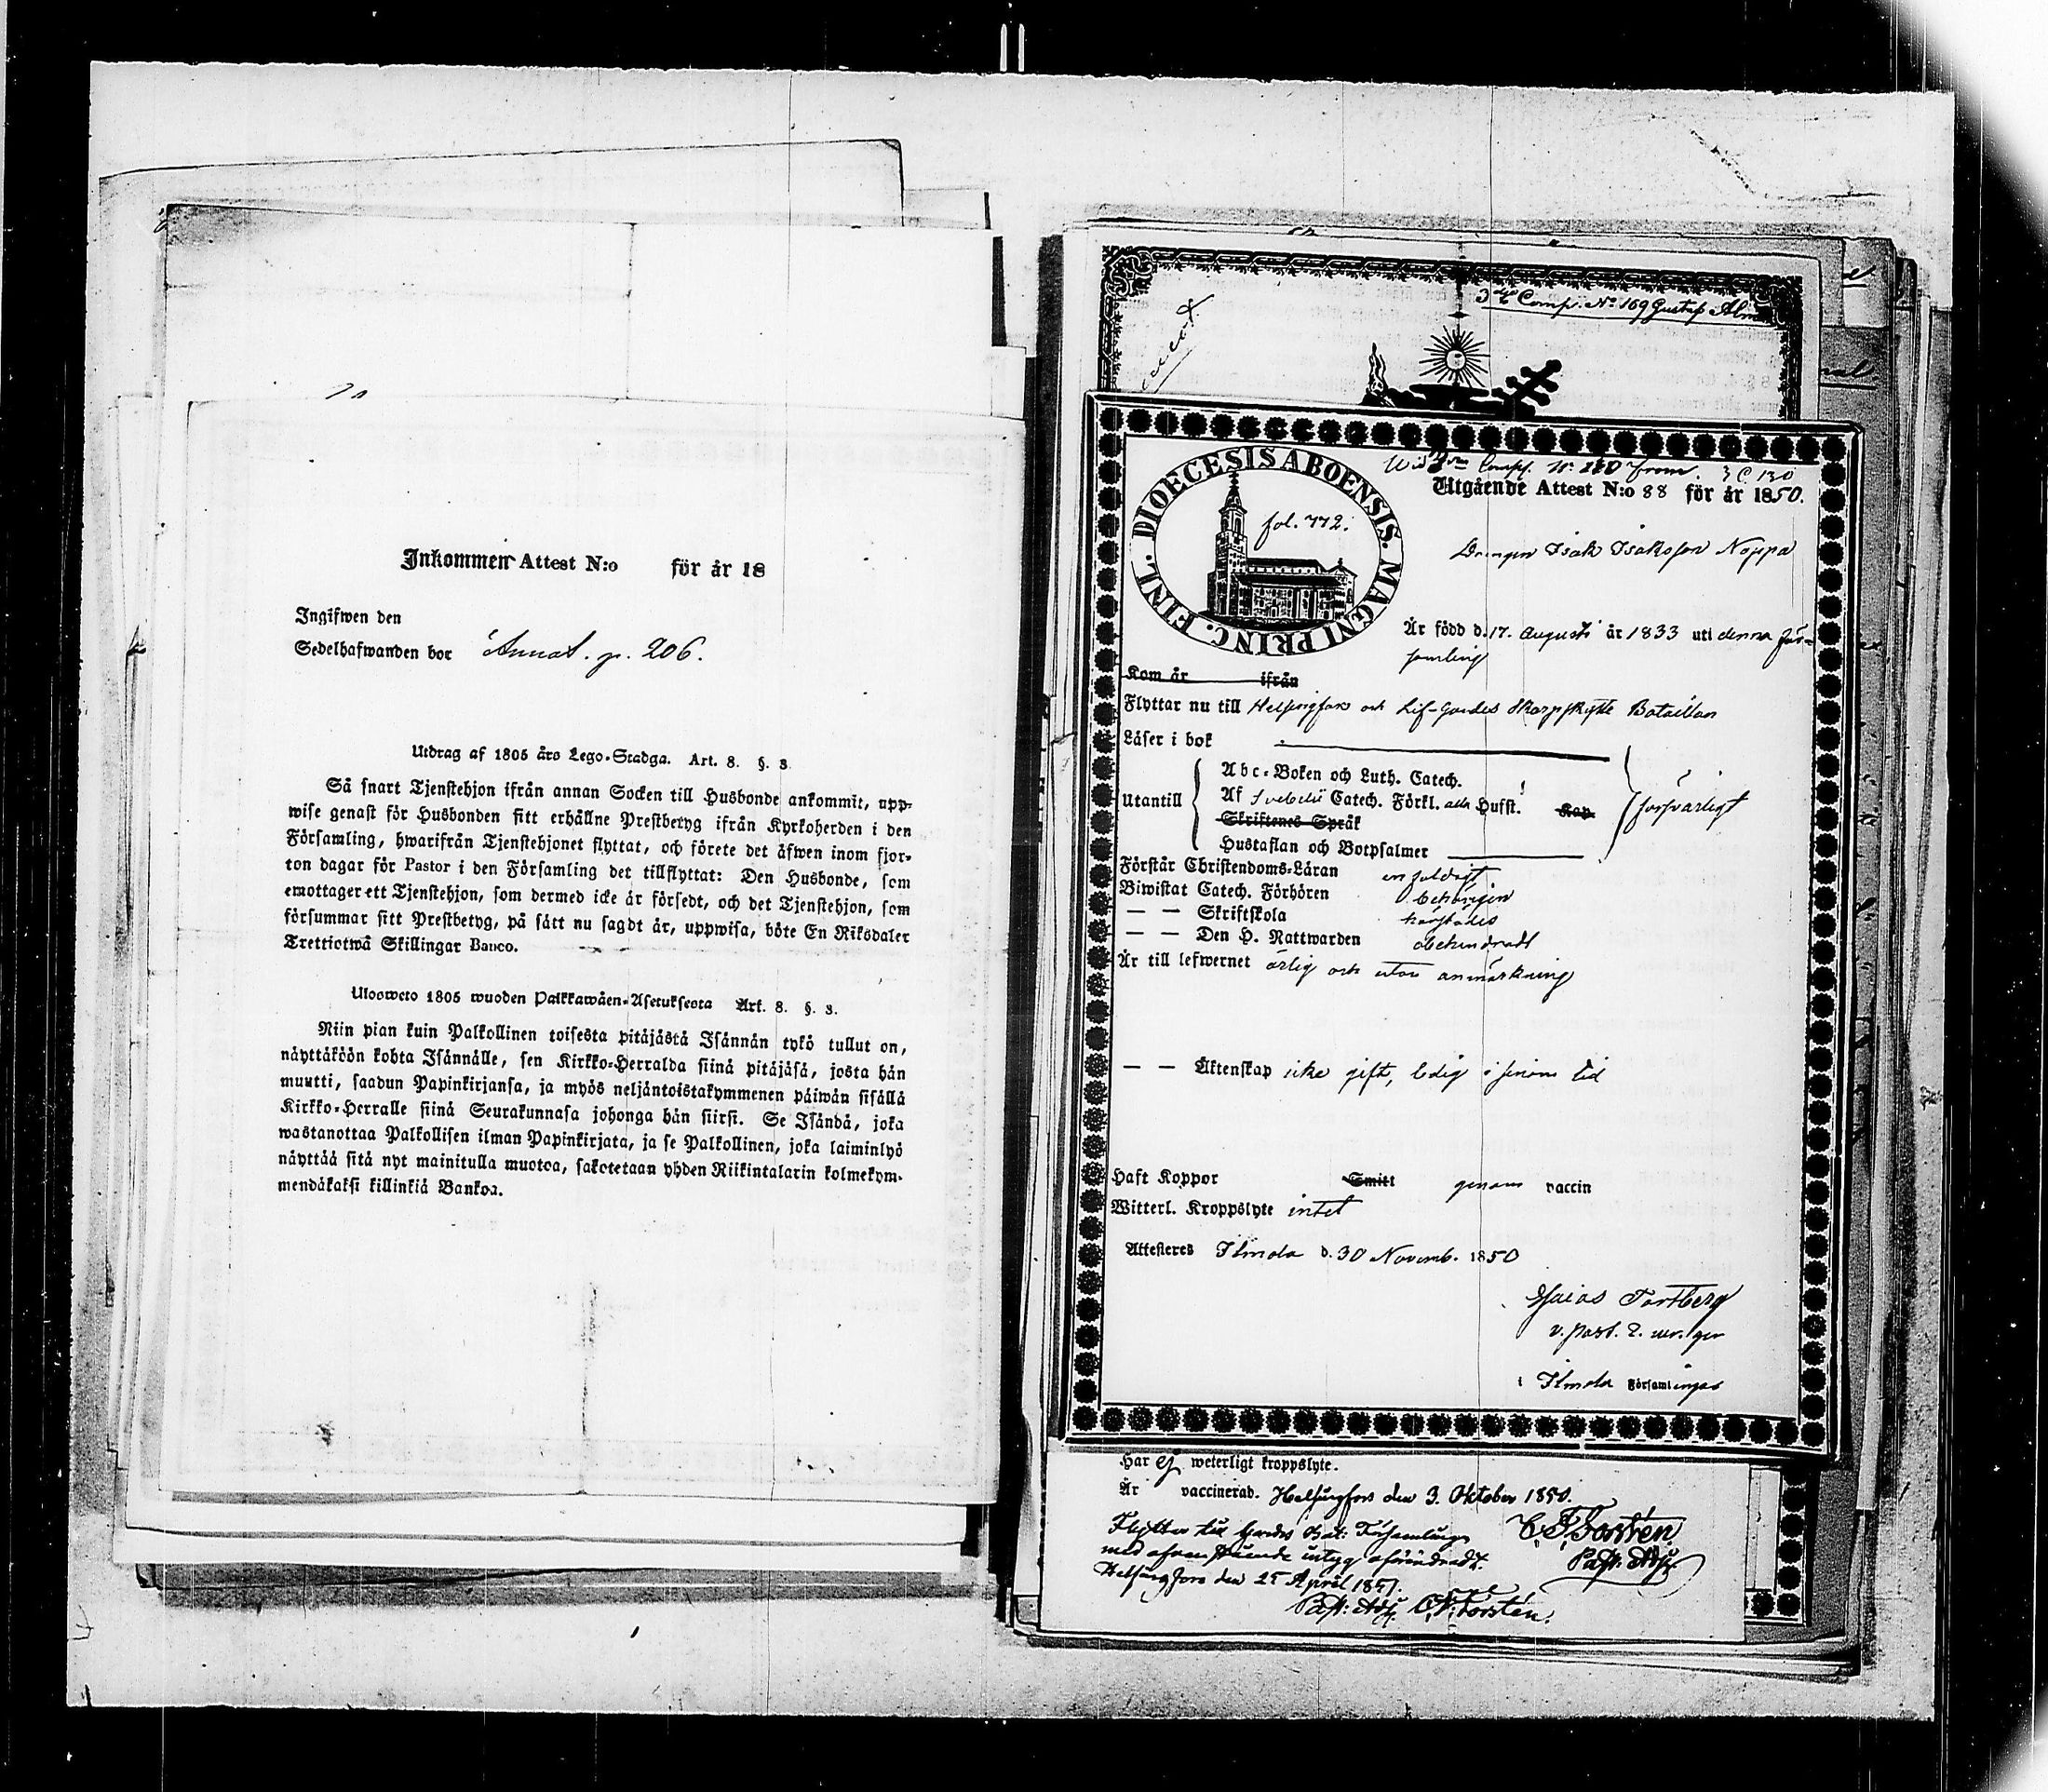 Inkommen Attest N:o för år 18
Ingifwen den
Sedelhafwanden bor Annot. p. 206.
Utdrag af 1805 års Lego-Stadga. Art. 8. §. 3.
Så snart Tjenstehjon ifrån annan Socken till Husbonde ankommit, upp-
wise genast för Husbonden sitt erhållne Prestbetyg ifrån Kyrkoherden i den
Församling, hwarifrån Tjenstehjonet flyttat, och förete det äfwen inom fjor-
ton dagar för Pastor i den Församling det tillflyttat: Den Husbonde, som
emottager ett Tjenstehjon, som dermed icke är försedt, och det Tjenstehjon, som
försummar sitt Prestbetyg, på sätt nu sagdt är, uppwisa, böte En Riksdaler
Trettiotwå Skillingar Banco.
Ulosweto 1805 wuoden Palkkawäen-Asetuksesta Art. 8. §. 3.
Niin pian kuin Palkollinen toisesta pitäjästä Isännän tykö tullut on,
näyttäköön kohta Isännälle, sen Kirkko-Herralda siinä pitäjäsä, josta hän
muutti, saadun Papinkirjansa, ja myös neljäntoistakymmenen päiwän sisällä
Kirkko-Herralle siinä Seurakunnasa johonga hän siirsi. Se Isändä, joka
wastanottaa Palkollisen ilman Papinkirjata, ja se Palkollinen, joka laiminlyö
näyttää sitä nyt mainitulla muotoa, sakotetaan yhden Riikintalarin kolmekym-
mendäkaksi killinkiä Bankoa.
3 Comp. No 169 Gustaf
DIOECESIS ABOENSIS. MAGNI PRINC. FINL.
fol. 772.
3 C 130
Utgående Attest N:o 88 för år 1850.
Drengen Isak Isaksson Noppa
Är född d. 17. Augusti år 1833 uti denna för-
samling
Kom år ifrån
Flyttar nu till Helsingfors och Lif-Gardes Skarpskytte Bataillon
Läser i bok
Utantill
Abc-Boken och Luth. Catech.
Af Svebelii Catech. Förkl. alla Hufst. Kap
Skriftenes Språk
Hustaflan och Botpsalmer
försvarligt
Förstår Christendoms-Läran enfaldigt
Biwistat Catech. Förhören behörigen
— — Skriftskola härstädes
— — Den H. Nattwarden obehindradt
Är till lefwernet ärlig och utan anmärkning
— — Äktenskap icke gift, ledig i sinom tid
Haft Koppor Smitt genom vaccin
Witterl. Kroppslyte intet
Attesteres Ilmola d. 30 Novemb. 1850
Esaias Fortberg
v. past.
i Ilmola Församlingar
Har ej weterligt kroppslyte.
Är vaccinerad. Helsingfors den 3. Oktober 1850.
Flyttar till Gardes Bat: Församling
med ofvanstående intyg oförändradt.
Helsingfors den 25 April 1851.
Past: Adj.
Past: Adj. Torstén.